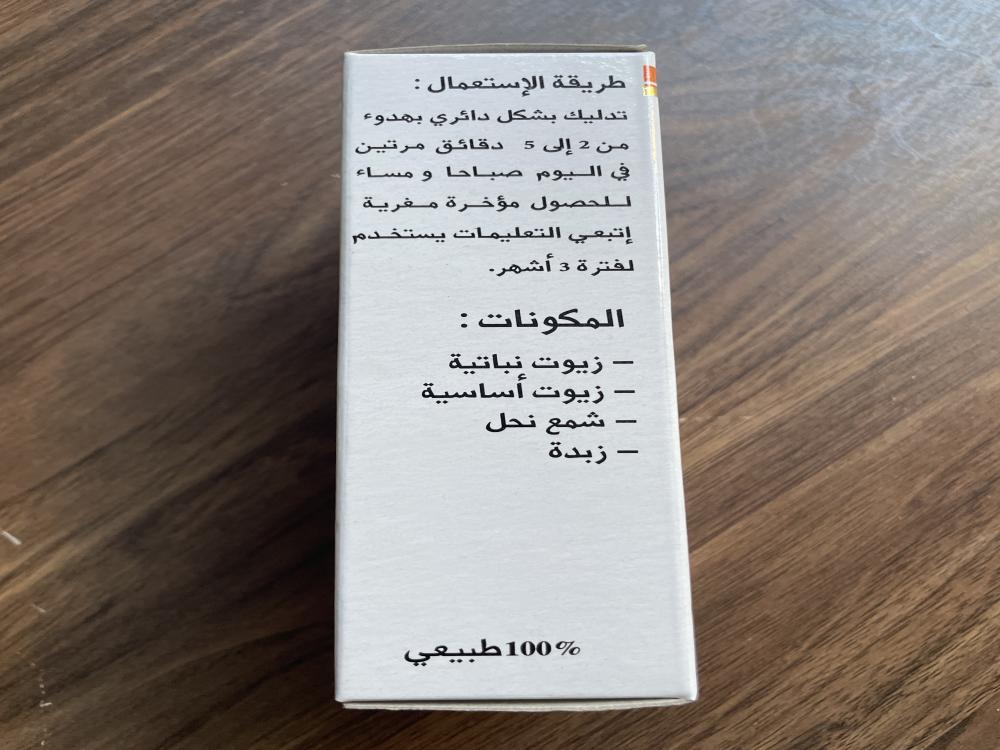 طريقة الإستعمال :
تدليك بشكل دائري بهدوء
من 2 إلى 5 دقائق مرتين
في اليوم صباحا و مساء
للحصول مؤخرة مغرية
إتبعي التعليمات يستخدم
لفترة 3 أشهر.
المكونات :
– زيوت نباتية
– زيوت أساسية
– شمع نحل
– زبدة
%100 طبيعي